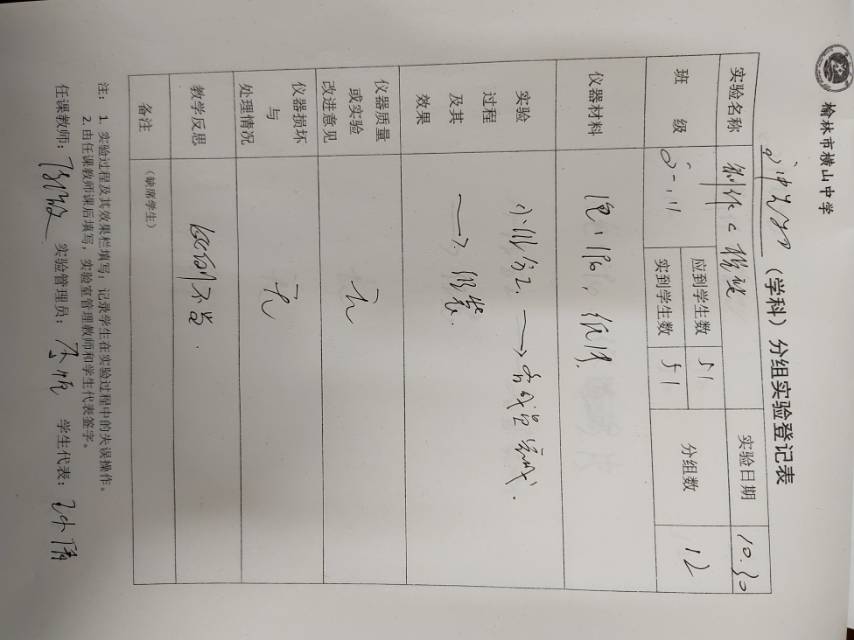 榆林市横山中学
(学科)分组实验登记表
实验名称 制作 模型 实验日期 10.30
班 级 应到学生数 51 分组数 12
实到学生数 51
仪器材料
实验过程及其效果 小组分工 → 各成员完成
→ 组装.
仪器质量或实验改进意见 无
仪器损坏与处理情况 无
教学反思 比例不当.
备注 (缺席学生)
注: 1. 实验过程及其效果栏填写: 记录学生在实验过程中的失误操作。
2. 由任课教师课后填写, 实验室管理教师和学生代表签字。
任课教师: 实验管理员: 学生代表: